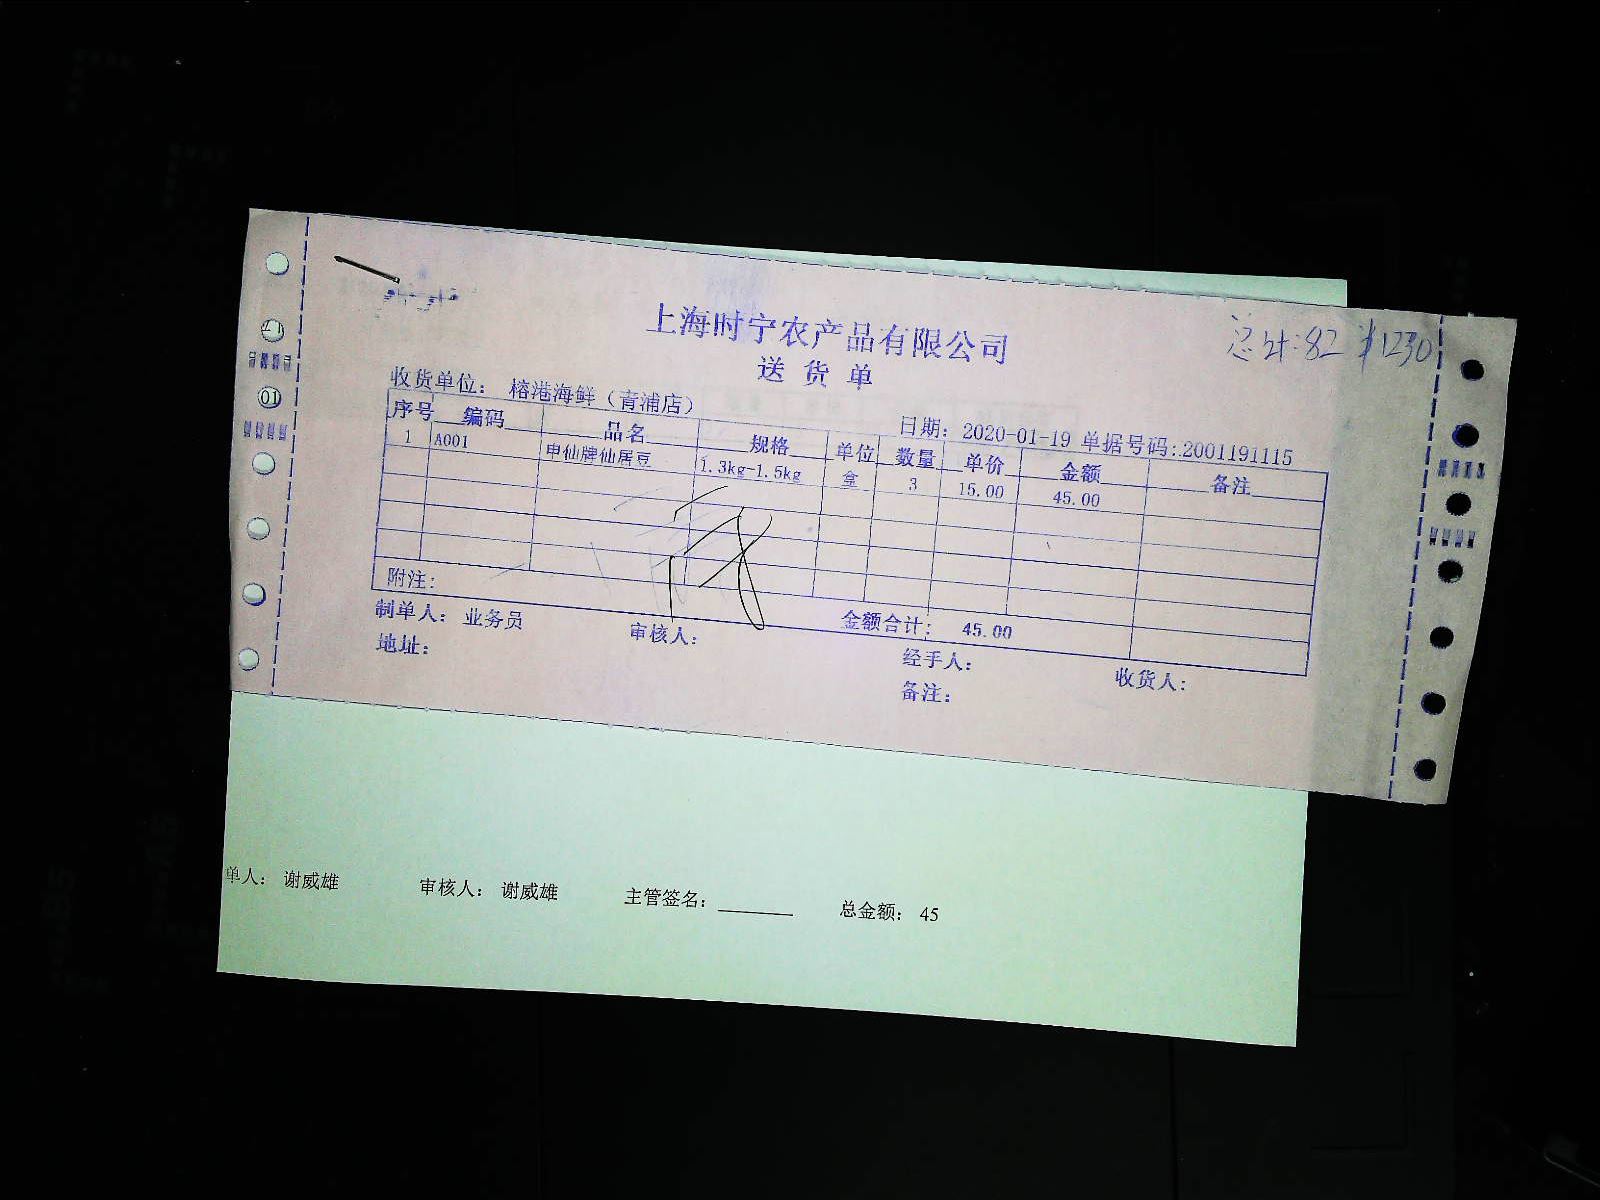 总计:82 ¥1230
上海时宁农产品有限公司
送货单
收货单位： 榕港海鲜（青浦店）
日期： 2020-01-19 单据号码:.2001191115
序号 编码 品名 规格 单位 数量 单价 金额 备注
1 A001 申仙牌仙居豆 1.3kg-1.5kg 盒 3 15.00 45.00
附注：
金额合计： 45.00
制单人： 业务员 审核人： 经手人： 收货人：
地址： 备注：
01
单人： 谢威雄 审核人： 谢威雄 主管签名： 总金额： 45